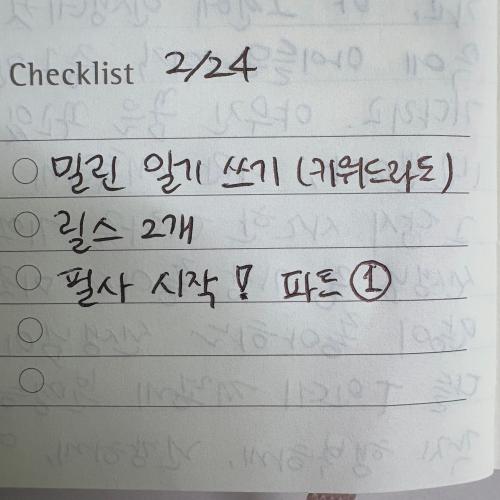 Checklist 2/24
밀린 일기 쓰기 (키워드라도)
릴스 2개
필사 시작! 파트 ①